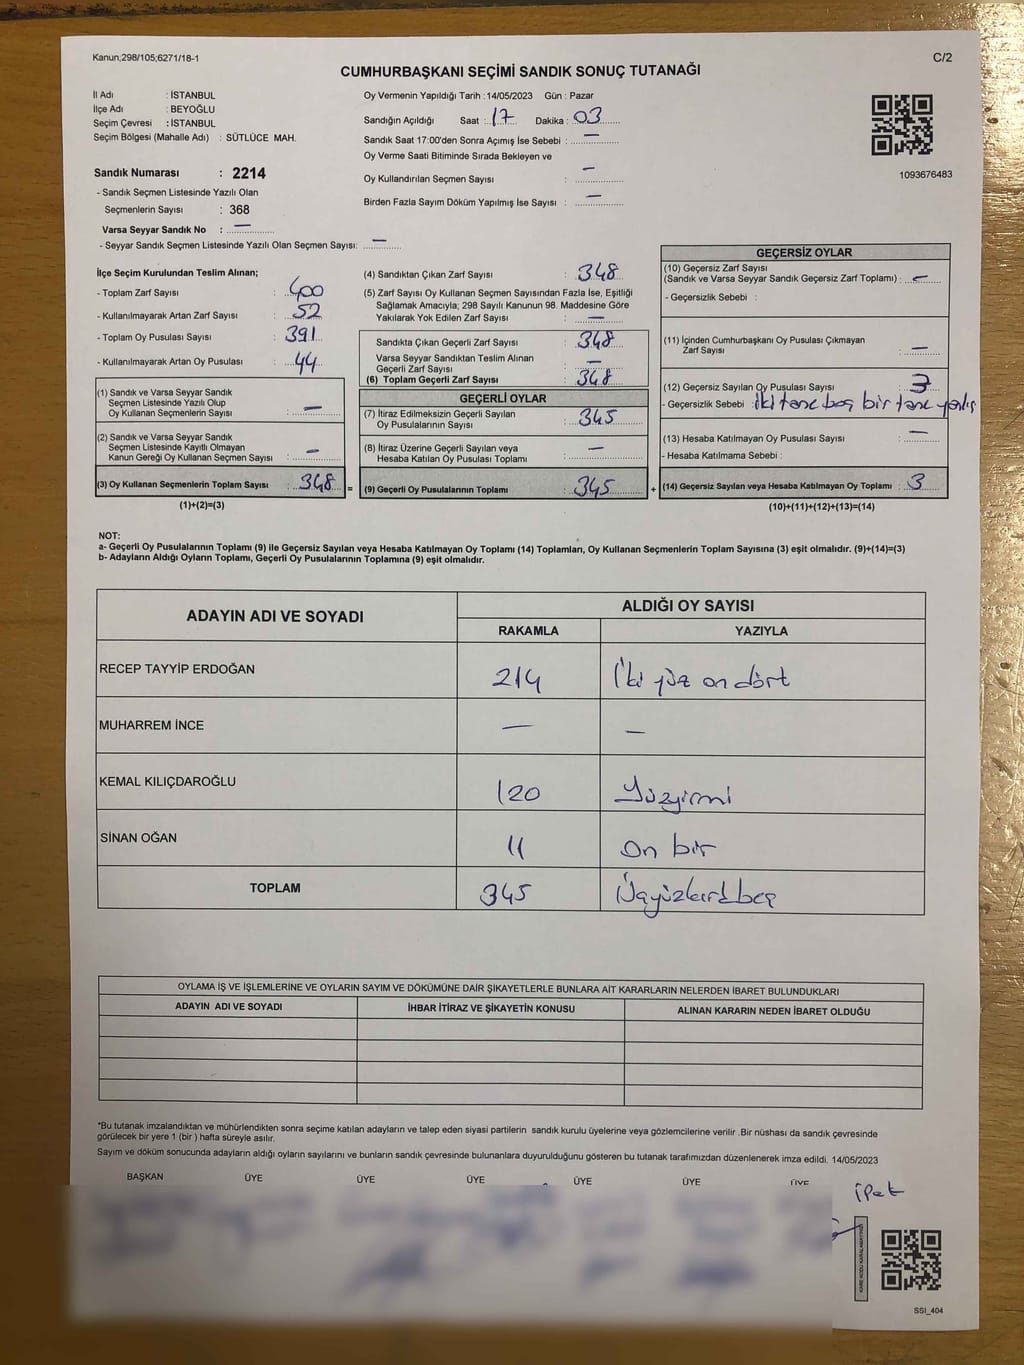 Kanun;298/105;6271/18-1
C/2
CUMHURBAŞKANI SEÇİMİ SANDIK SONUÇ TUTANAĞI
İl Adı : İSTANBUL
İlçe Adı : BEYOĞLU
Seçim Çevresi : İSTANBUL
Seçim Bölgesi (Mahalle Adı) : SÜTLÜCE MAH.
Sandık Numarası : 2214
- Sandık Seçmen Listesinde Yazılı Olan
Seçmenlerin Sayısı : 368
Varsa Seyyar Sandık No : —
- Seyyar Sandık Seçmen Listesinde Yazılı Olan Seçmen Sayısı: —
Oy Vermenin Yapıldığı Tarih :14/05/2023 Gün : Pazar
Sandığın Açıldığı Saat : 17 Dakika : 03
Sandık Saat 17:00'den Sonra Açımış İse Sebebi : —
Oy Verme Saati Bitiminde Sırada Bekleyen ve
Oy Kullandırılan Seçmen Sayısı : —
Birden Fazla Sayım Döküm Yapılmış İse Sayısı : —
1093676483
İlçe Seçim Kurulundan Teslim Alınan;
- Toplam Zarf Sayısı : 400
- Kullanılmayarak Artan Zarf Sayısı : 52
- Toplam Oy Pusulası Sayısı : 391
- Kullanılmayarak Artan Oy Pusulası : 44
(1) Sandık ve Varsa Seyyar Sandık
Seçmen Listesinde Yazılı Olup
Oy Kullanan Seçmenlerin Sayısı : —
(2) Sandık ve Varsa Seyyar Sandık
Seçmen Listesinde Kayıtlı Olmayan
Kanun Gereği Oy Kullanan Seçmen Sayısı : —
(3) Oy Kullanan Seçmenlerin Toplam Sayısı : 348 =
(1)+(2)=(3)
(4) Sandıktan Çıkan Zarf Sayısı : 348
(5) Zarf Sayısı Oy Kullanan Seçmen Sayısından Fazla İse, Eşitliği
Sağlamak Amacıyla; 298 Sayılı Kanunun 98. Maddesine Göre
Yakılarak Yok Edilen Zarf Sayısı : —
Sandıkta Çıkan Geçerli Zarf Sayısı : 348
Varsa Seyyar Sandıktan Teslim Alınan
Geçerli Zarf Sayısı : —
(6) Toplam Geçerli Zarf Sayısı : 348
GEÇERLİ OYLAR
(7) İtiraz Edilmeksizin Geçerli Sayılan
Oy Pusulalarının Sayısı : 345
(8) İtiraz Üzerine Geçerli Sayılan veya
Hesaba Katılan Oy Pusulası Toplamı : —
(9) Geçerli Oy Pusulalarının Toplamı : 345 +
GEÇERSİZ OYLAR
(10) Geçersiz Zarf Sayısı
(Sandık ve Varsa Seyyar Sandık Geçersiz Zarf Toplamı) : —
- Geçersizlik Sebebi :
(11) İçinden Cumhurbaşkanı Oy Pusulası Çıkmayan
Zarf Sayısı : —
(12) Geçersiz Sayılan Oy Pusulası Sayısı : 3
- Geçersizlik Sebebi : iki tane boş bir tane yanlış
(13) Hesaba Katılmayan Oy Pusulası Sayısı : —
- Hesaba Katılmama Sebebi :
(14) Geçersiz Sayılan veya Hesaba Katılmayan Oy Toplamı : 3
(10)+(11)+(12)+(13)=(14)
NOT:
a- Geçerli Oy Pusulalarının Toplamı (9) ile Geçersiz Sayılan veya Hesaba Katılmayan Oy Toplamı (14) Toplamları, Oy Kullanan Seçmenlerin Toplam Sayısına (3) eşit olmalıdır. (9)+(14)=(3)
b- Adayların Aldığı Oyların Toplamı, Geçerli Oy Pusulalarının Toplamına (9) eşit olmalıdır.
ADAYIN ADI VE SOYADI
ALDIĞI OY SAYISI
RAKAMLA YAZIYLA
RECEP TAYYİP ERDOĞAN 214 İki yüz on dört
MUHARREM İNCE — —
KEMAL KILIÇDAROĞLU 120 Yüzyirmi
SİNAN OĞAN 11 On bir
TOPLAM 345 Üçyüzkırkbeş
OYLAMA İŞ VE İŞLEMLERİNE VE OYLARIN SAYIM VE DÖKÜMÜNE DAİR ŞİKAYETLERLE BUNLARA AİT KARARLARIN NELERDEN İBARET BULUNDUKLARI
ADAYIN ADI VE SOYADI İHBAR İTİRAZ VE ŞİKAYETİN KONUSU ALINAN KARARIN NEDEN İBARET OLDUĞU
*Bu tutanak imzalandıktan ve mühürlendikten sonra seçime katılan adayların ve talep eden siyasi partilerin sandık kurulu üyelerine veya gözlemcilerine verilir .Bir nüshası da sandık çevresinde
görülecek bir yere 1 (bir ) hafta süreyle asılır.
Sayım ve döküm sonucunda adayların aldığı oyların sayılarını ve bunların sandık çevresinde bulunanlara duyurulduğunu gösteren bu tutanak tarafımızdan düzenlenerek imza edildi. 14/05/2023
BAŞKAN ÜYE ÜYE ÜYE ÜYE ÜYE ÜYE
İpek
KARE KODU KARALAMAYINIZ!
SSI_404